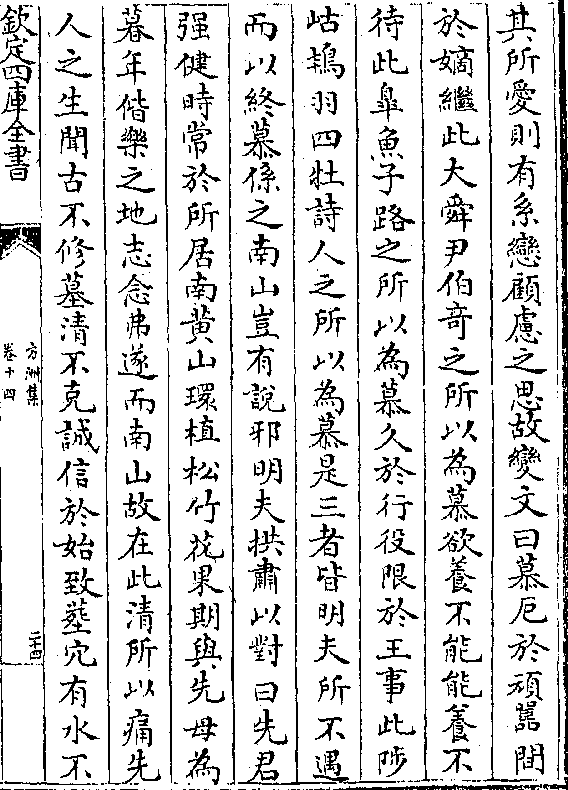 其所愛則有系戀顧慮之思故變文曰慕厄於頑嚚間
於嫡繼此大舜尹伯奇之所以為慕欲養不能能養不
待此臯魚子路之所以為慕久於行役限於王事此陟
岵鴇羽四牡詩人之所以為慕是三者皆明夫所不遇
而以終慕係之南山豈有說邪明夫拱肅以對曰先君
强健時常於所居南黄山環植松竹花果期與先母為
暮年偕樂之地志念弗遂而南山故在此清所以痛先
人之生聞古不修墓清不克誠信於始致塟穴有水不
欽定四庫全書
方洲集
卷十四
二十四